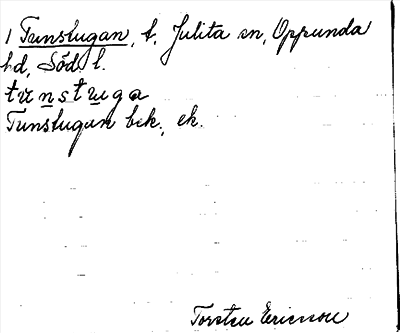 1 Tunstugan, t. Julita sn, Oppunda
hd, Söd. l.
tunstuga
Tunstugan bek., ek.
Torsten Ericsson